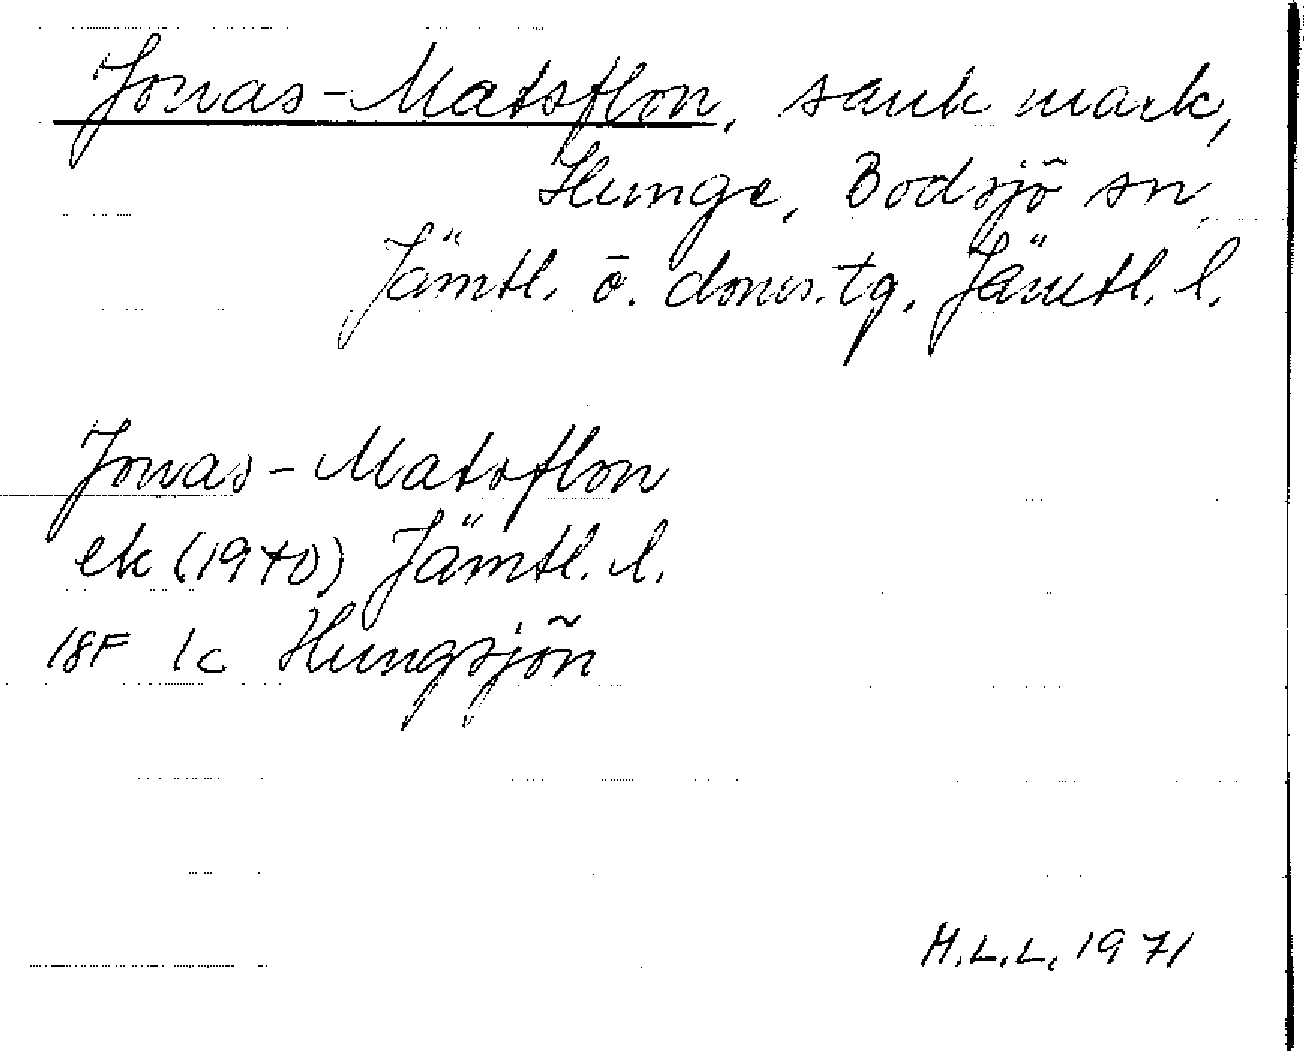 Jonas-Matsflon, sank mark,
Hunge, Bodsjö sn,
Jämtl. ö. doms.tg. Jämtl. l.
Jonas-Matsflon
ek (1970) Jämtl. l.
18F 1c Hungsjön
M.L.L. 1971